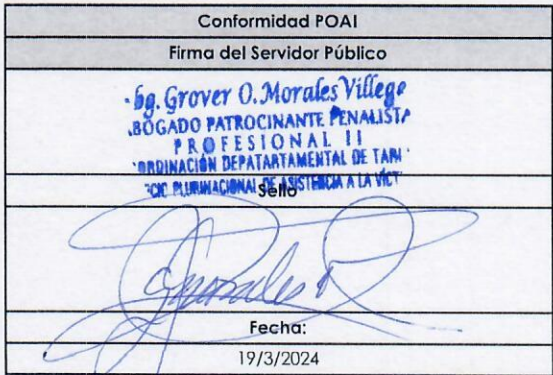 Conformidad POAI
Firma del Servidor Público
bg. Grover O. Morales Villega
BOGADO PATROCINANTE PENALIST
PROFESIONAL II
ORDINACIÓN DEPATARTAMENTAL DE TARI
CIO PLURINACIONAL DE ASISTENCIA A LA VÍCT
Sello
Fecha:
19/3/2024